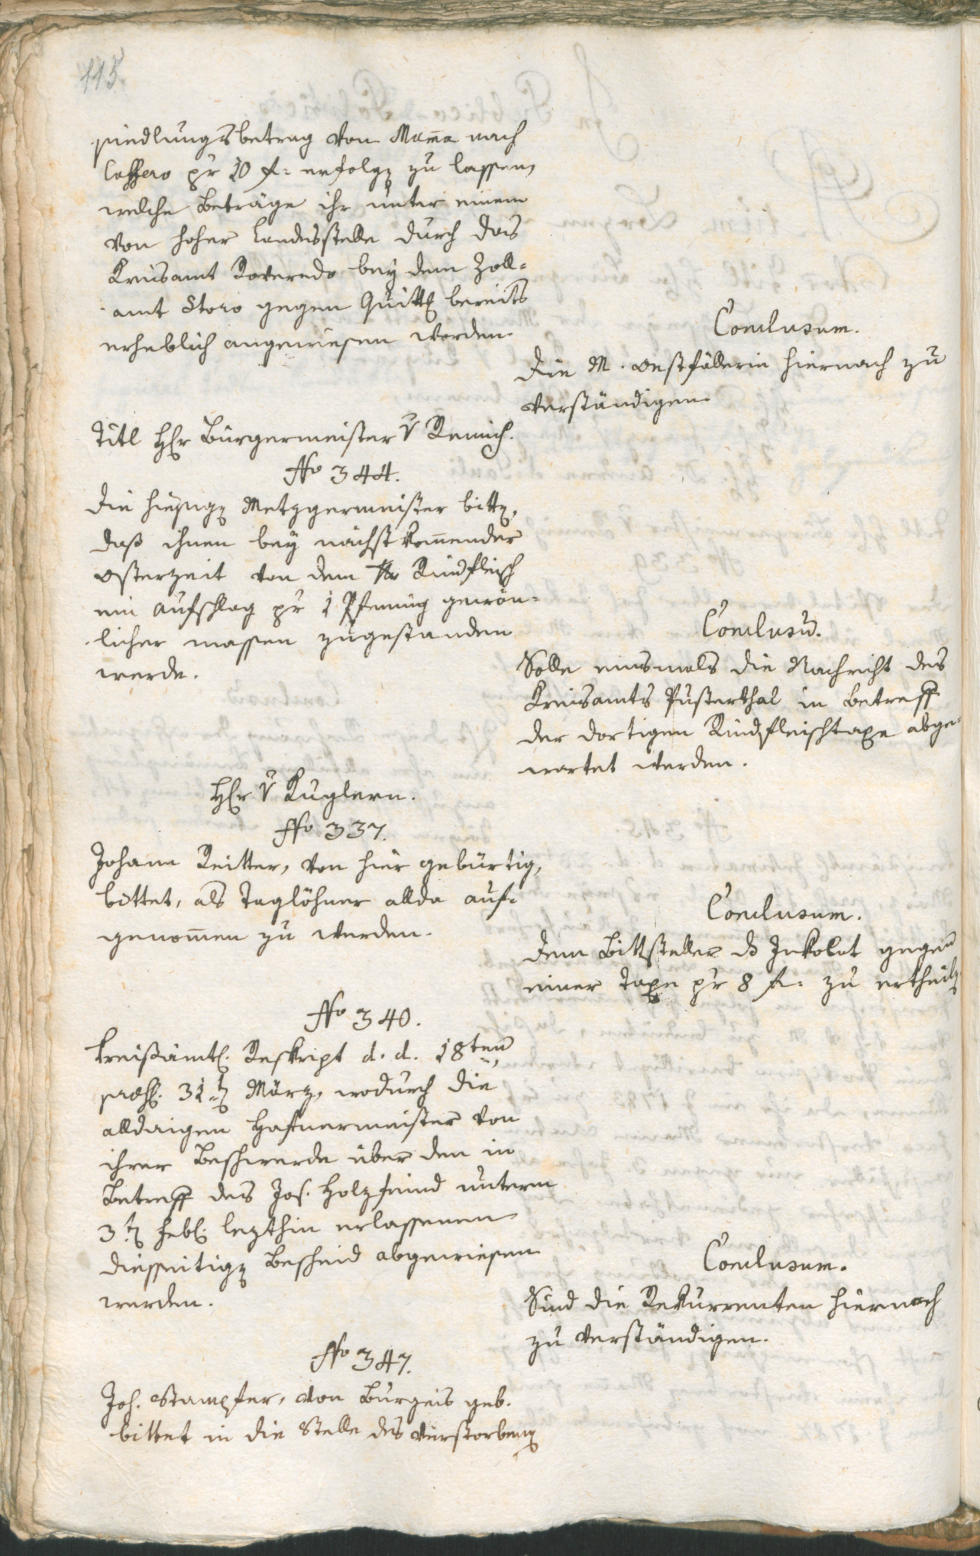 115.
siedlungsbetrag von Mama nach
Caffero pr 20 f: erfolgẽ zu lassen,
welche Beträge ihr unter einem
von hoher Landesstelle durch das
Kreisamt Roveredo bey dem Zoll-
amt Storo gegen Quittẽ bereits
erheblich angewiesen worden.
Conclusum.
Die M. hiernach zu
verständigen.
Titl Hr Bürgermeister v Remich.
No 344.
Die hiesigẽ Metzgermeister bittẽ,
daß ihnen bey nächst kom̄ender
Osterzeit von dem Rindfleisch
ein Aufschlag pr 1 Pfenning gewön-
licher massen zugestanden
werde.
Conclusũ.
Solle einsmals die Nachricht des
Kreisamts Pusterthal in Betreff
der dortigen Rindfleischtaxe abge-
wartet werden.
Hr v Kuglern.
No 337.
Johann Reitter, von hier gebürtig,
bittet, als Taglöhner allda auf-
genom̄en zu werden.
Conclusum.
Dem Bittsteller ds Inkolat gegen
einer Taxe pr 8 f: zu ertheilẽ
No 340.
Kreißämtl. Reskript d. d. 18ten
präs. 31tẽ März, wodurch die
alldaigen Hafnermeister von
ihrer Beschwerde über den in
Betreff des Jos. Holzfeind unterm
3tẽ Febl. lezthin erlassenen
diesseitigẽ Bescheid abgewiesen
werden.
Conclusum.
Sind die Rekurrenten hiernach
zu verständigen.
No 347.
Joh. Stampfer, von Burgeis geb.
bittet in die Stelle des verstorbenẽ